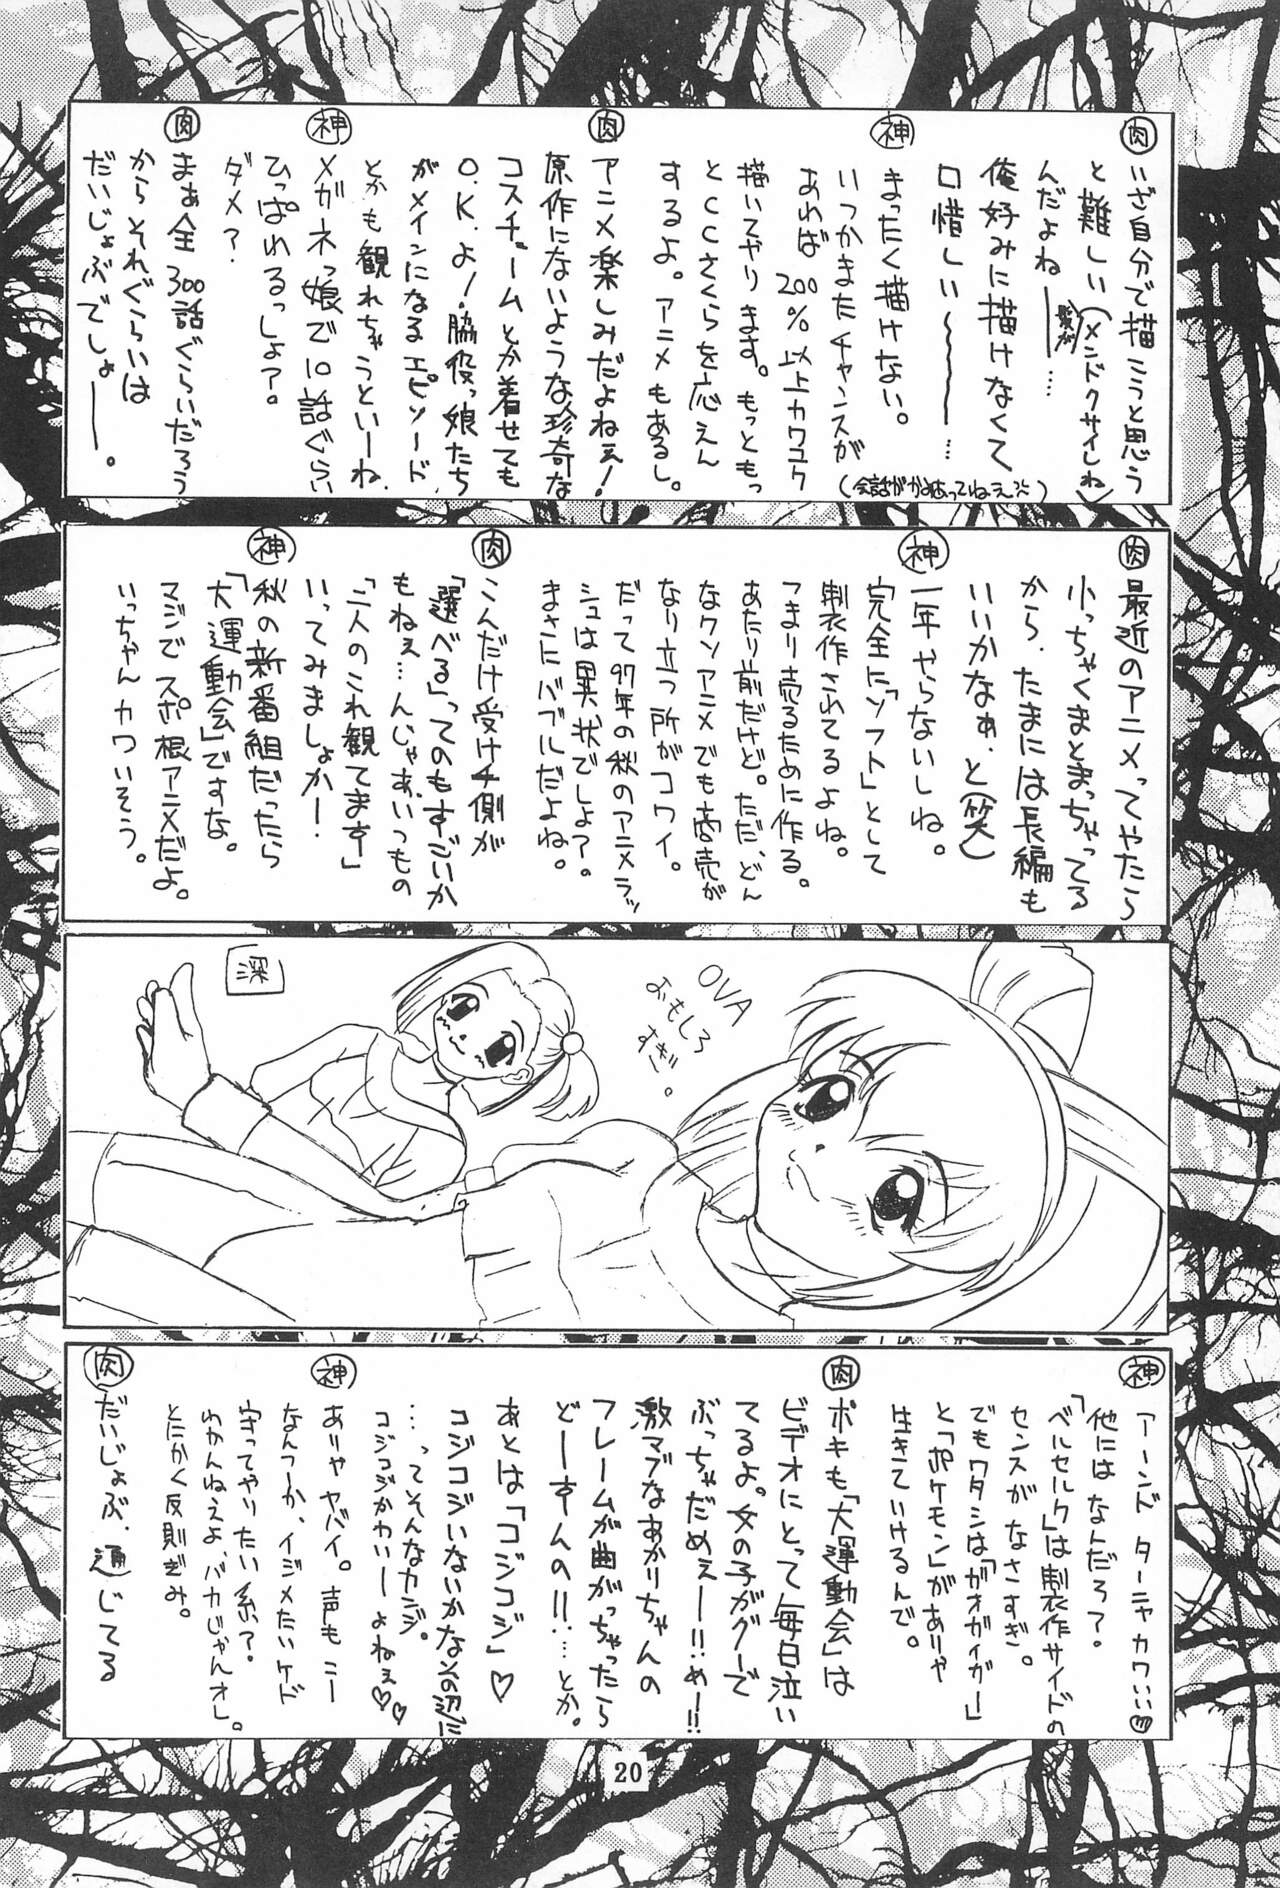 肉
いざ自分で描こうと思う
と難しい(メンドクサイしね)
髪が
んだよね──…
俺好みに描けなくて
口惜しい〜〜〜…
神
まったく描けない。
いつかまたチャンスが
あれば200%以上カワユク
描いてやります。もっともっ
とCCさくらを応えん
するよ。アニメもあるし。
(会話がかみあってねえ)
肉
アニメ楽しみだよねぇ!
原作にないような珍奇な
コスチュームとか着せても
O.K.よ!脇役っ娘たち
がメインになるエピソード
とかも観れちゃうといーね
神
メガネっ娘で10話ぐらい
ひっぱれるっしょ?。
ダメ?
肉
まぁ全300話ぐらいだろう
からそれぐらいは
だいじょぶでしょ──。
肉
最近のアニメってやたら
小っちゃくまとまっちゃってる
から、たまには長編も
いいかなぁ、と(笑)
神
一年やらないしね。
完全に「ソフト」として
制作されてるよね。
つまり売るために作る。
あたり前だけど。ただ、どん
なクソアニメでも商売が
なり立つ所がコワイ。
だって97年の秋のアニメラッ
シュは異状でしよ?。
まさにバブルだよね。
肉
こんだけ受けチ側が
「選べる」ってのもすごいか
もねぇ…んじゃあいつもの
「二人のこれ観てます」
いってみましょか─!
神
秋の新番組だったら
「大運動会」ですな。
マジンでスポ根アニメだよ。
いっちゃんカワいそう。
深
OVA
おもしろ
すぎ。
神
アーンド ターニャカワいい♡
他にはなんだろ?。
「ベルセルク」は制作サイドの
センスがなさすぎ。
でもワタシは「ガオガイガー」
と「ポケモン」がありゃ
生きていけるんで。
肉
ポキも「大運動会」は
ビデオにとって毎日泣い
てるよ。女の子がグーで
ぶっちゃだめぇー!!め─!!
激マブなあかりちゃんの
フレームが曲がっちゃったら
どーすんの!!…とか。
あとは「コジコジ」♡
コジコジいないかなその辺に
…ってそんなカンジ。
コジコジかわい─よねぇ♡♡
神
ありゃヤバイ。声もこー
なんつーか、イジメたいケド
守ってやりたい系?
わかんねえよ、バカじゃんオレ。
とにかく反則ぎみ。
肉
だいじょぶ、通じてる
20